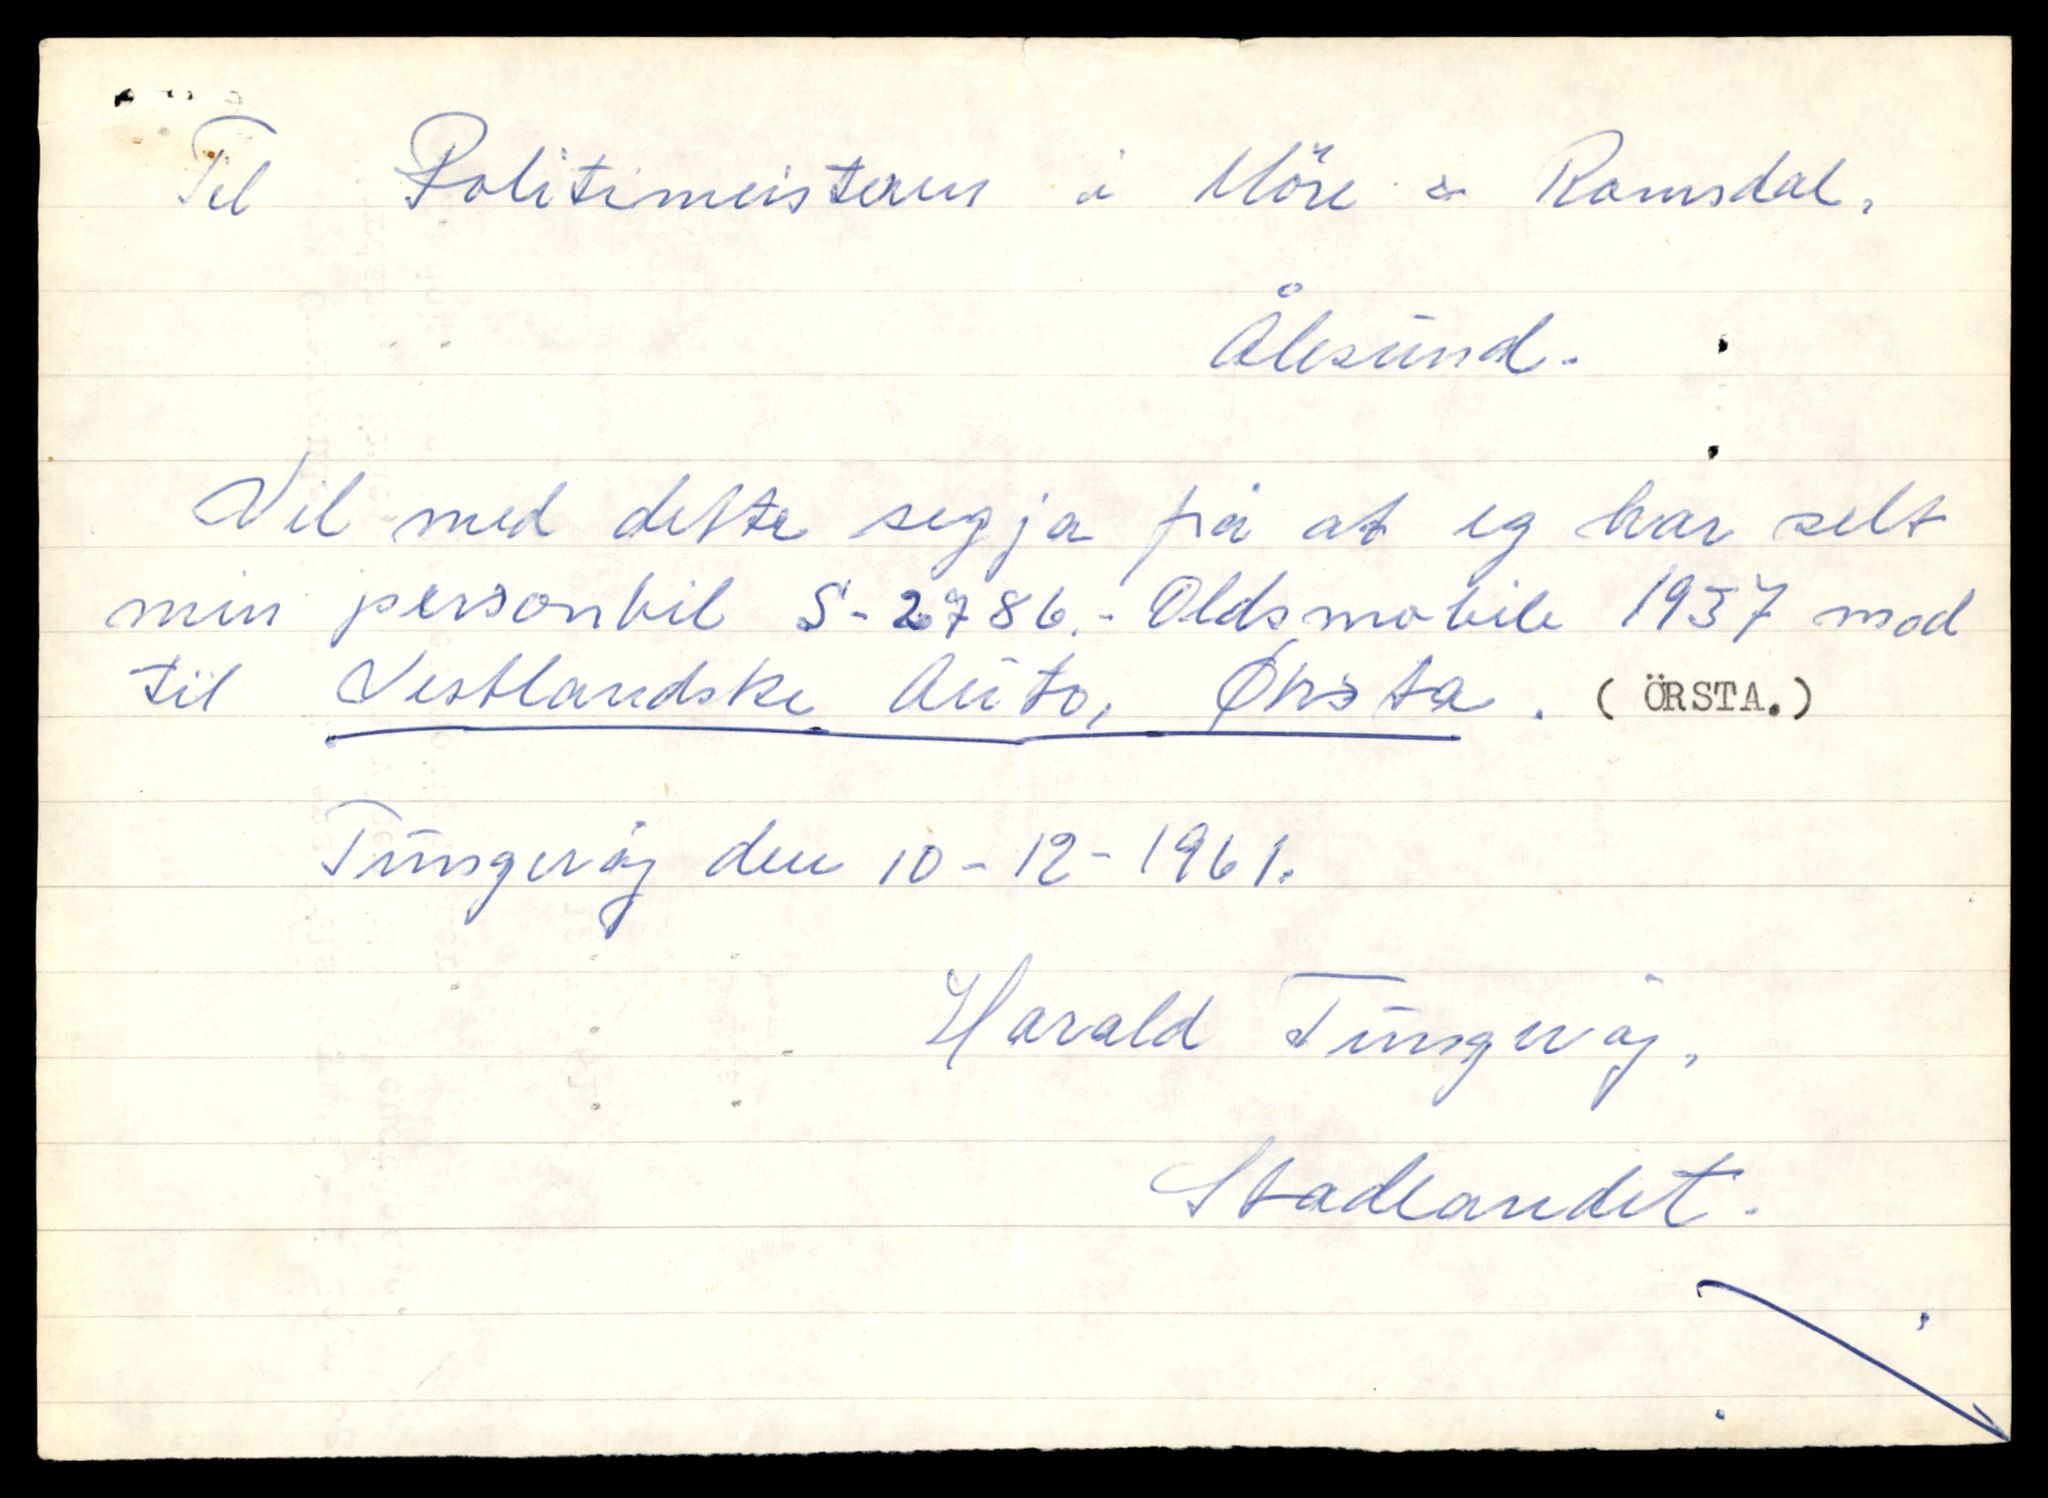 Til Politimeisteren i Möre & Romsdal.
Ålesund.
Vil med dette segja frå at eg har selt
min personbil S-2786.- Oldsmobile 1937 mod
til Vestlandske Auto, Ørsta. (ÖRSTA.)
Tungevåg den 10-12-1961.
Harald Tungevåg.
Stadlandet.